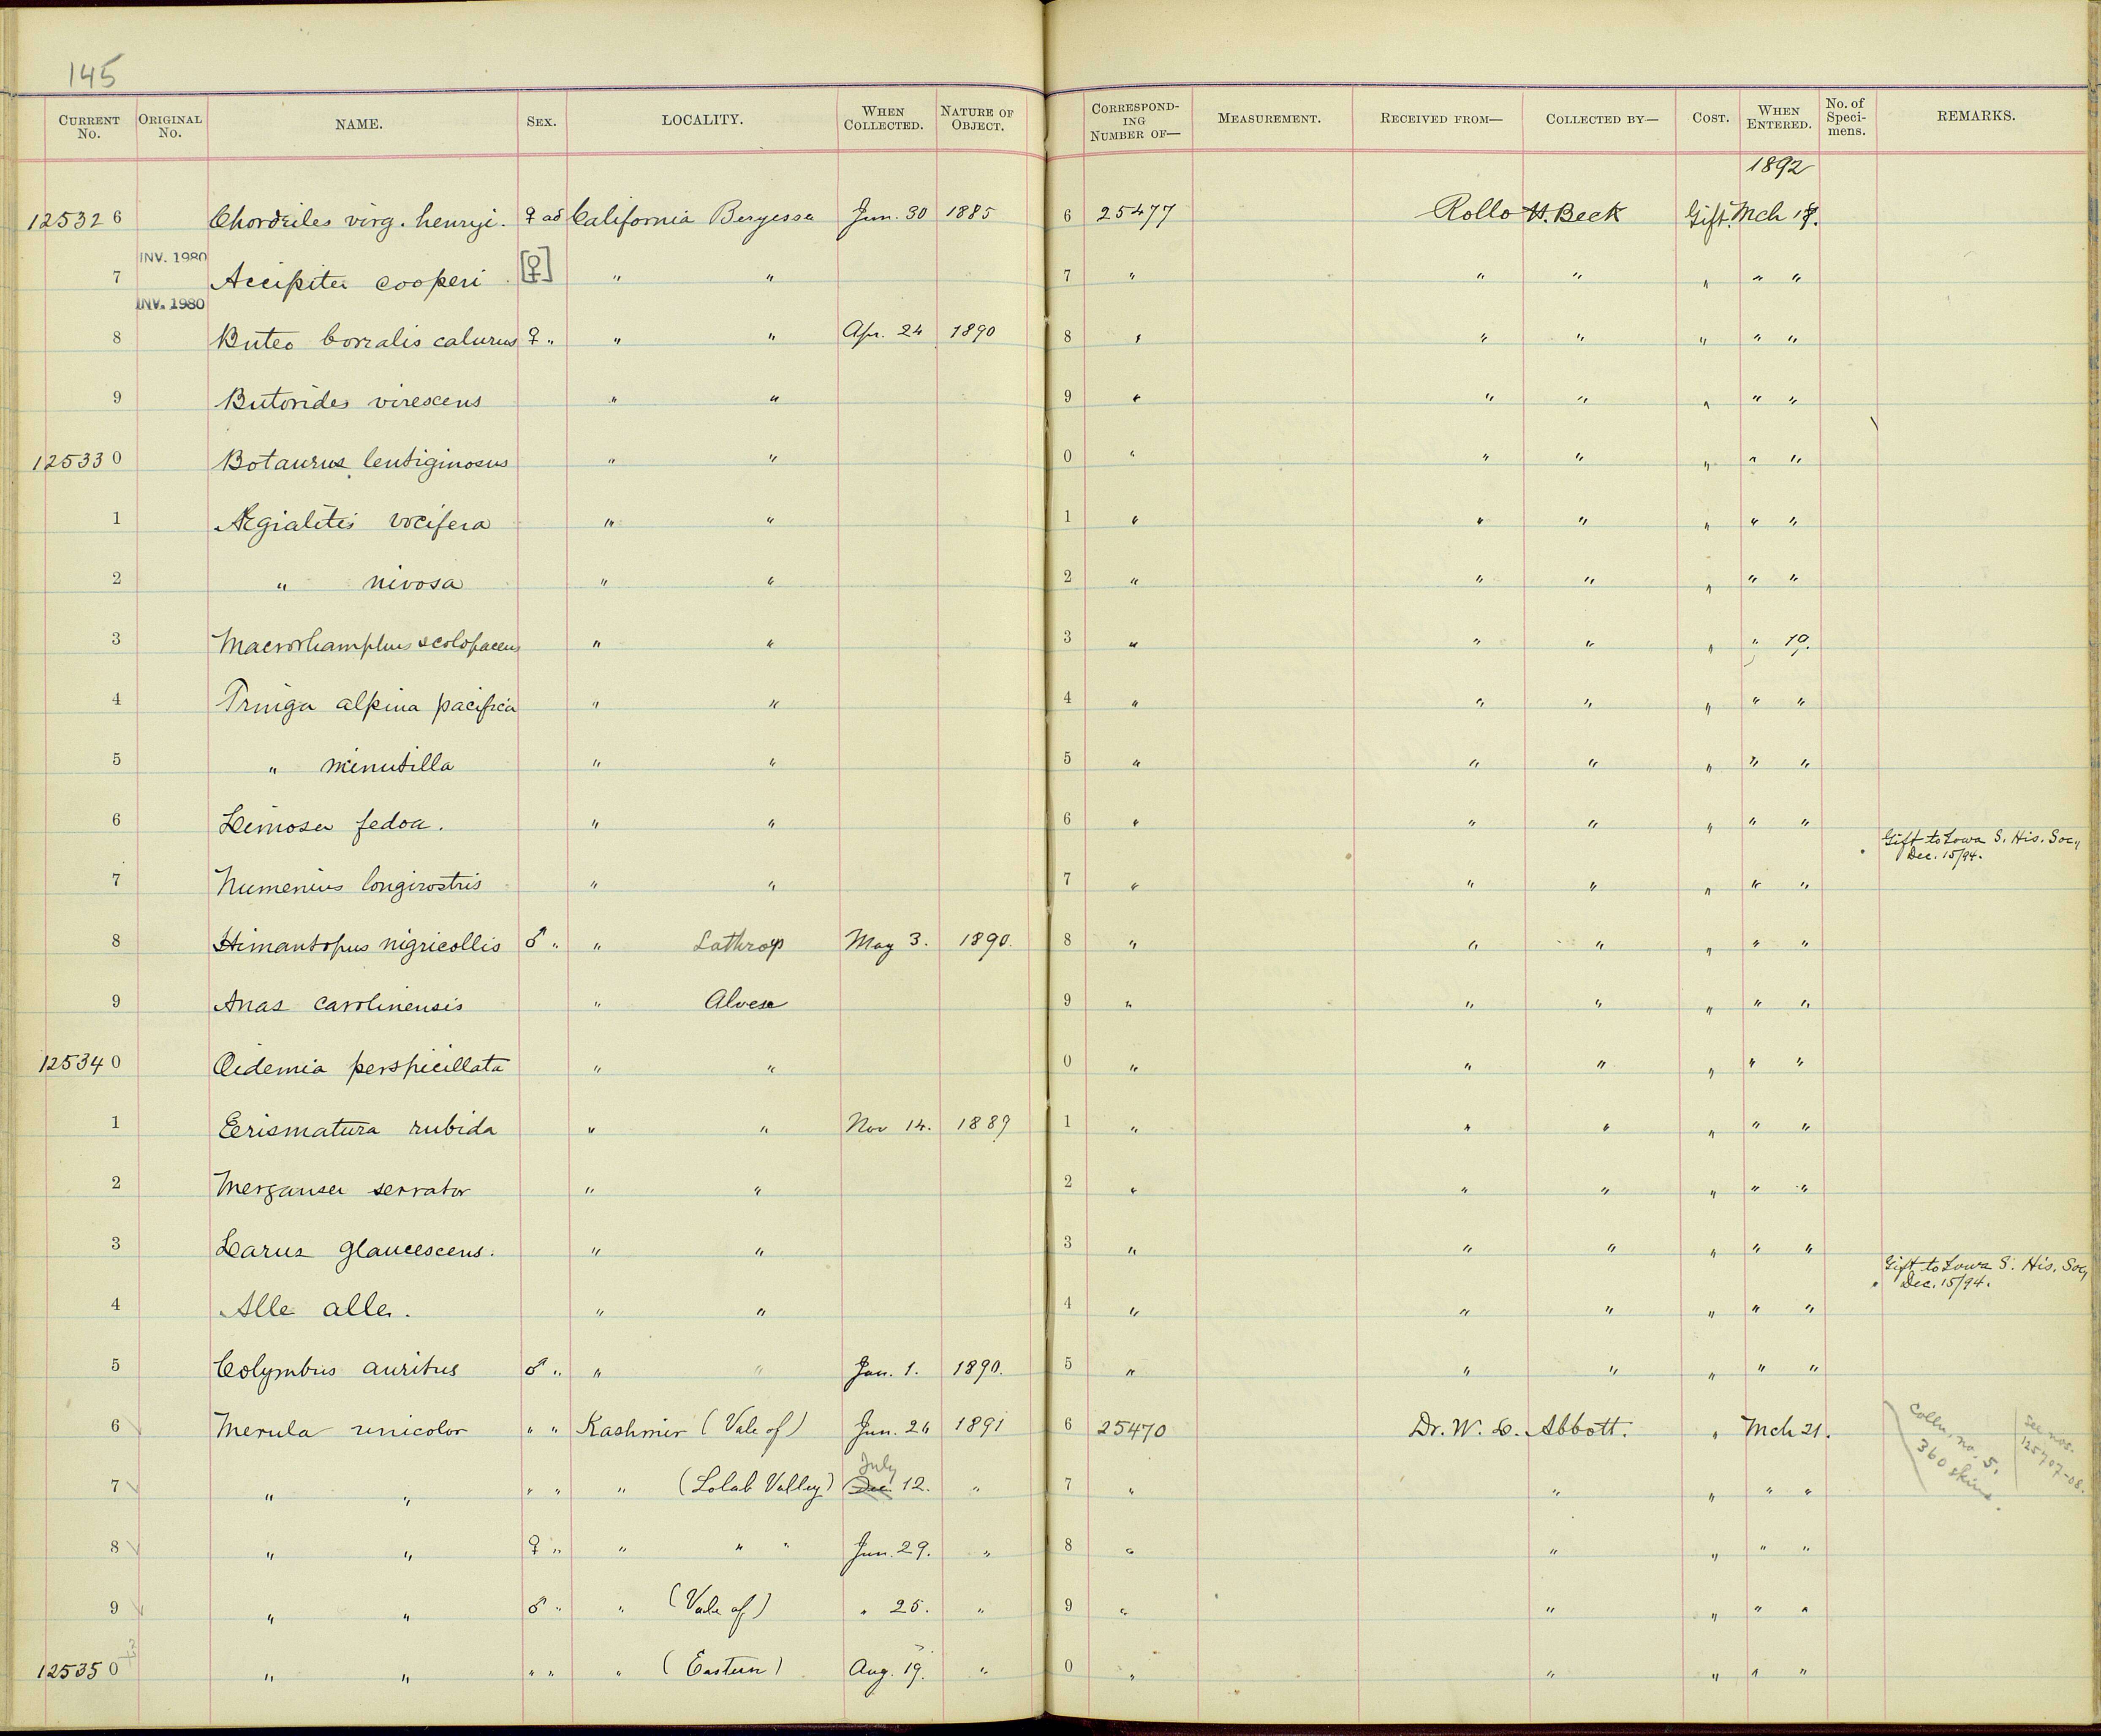 145
CURRENT No. ORIGINAL No. NAME. SEX. LOCALITY. WHEN COLLECTED. NATURE OF OBJECT. CORRESPONDING NUMBER OF— MEASUREMENT. RECEIVED FROM— COLLECTED BY— COST. WHEN ENTERED. No. of Specimens. REMARKS.
1892
125326 Chordeiles virg. henryi. ♀ ad California Beryessa Jun. 30 1885 6 25477 Rollo H. Beck Gift. Mch 18.
INV. 1980
7 Accipiter cooperi [♀] " " 7 " " " " " "
INV. 1980
8 Buteo borealis calurus ♀ " " " Apr. 24 1890 8 " " " " " "
9 Butorides virescens " " 9 " " " " " "
125330 Botaurus lentiginosus " " 0 " " " " " "
1 Ægialitis vocifera " " 1 " " " " " "
2 " nivosa " " 2 " " " " " "
3 Macrorhamphus scolopaceus " " 3 " " " " " 19.
4 Tringa alpina pacifica " " 4 " " " " " "
5 " minutilla " " 5 " " " " " "
6 Limosa fedoa. " " 6 " " " " " "
Gift to Iowa S. His. Soc,,
Dec. 15/94.
7 Numenius longirostris " " 7 " " " " " "
8 Himantopus nigricollis ♂ " " Lathrop May 3. 1890. 8 " " " " " "
9 Anas carolinensis " Alvesa 9 " " " " " "
125340 Oidemia perspicillata " " 0 " " " " " "
1 Erismatura rubida " " Nov 14. 1889 1 " " " " " "
2 Merganser serrator " " 2 " " " " " "
3 Larus glaucescens. " " 3 " " " " " "
Gift to Iowa S. His. Soc,
Dec. 15/94.
4 Alle alle. " " 4 " " " " " "
5 Colymbus auritus ♂ " " " Jan. 1. 1890. 5 " " " " " "
6 Merula unicolor " " Kashmir (Vale of) Jun. 24 1891 6 25470 Dr. W. L. Abbott. " Mch 21.
Colln, no. 5.
360 skins.
see nos.
125707-08.
July
7 " " " " " (Lolab Valley) Dec. 12. " 7 " " " " "
8 " " ♀ " " " " Jun. 29. " 8 " " " " "
9 " " ♂ " " (Vale of) " 25. " 9 " " " " "
125350 " " " " " (Eastern) Aug. 19. " 0 " " " " "